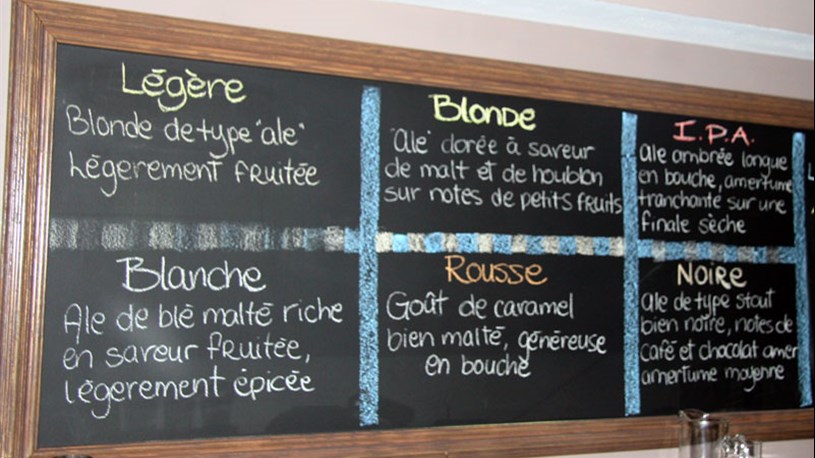 Légère
Blonde de type "ale"
Légerement fruitée
Blonde
"Ale" dorée à saveur
de malt et de houblon
sur notes de petits fruits
I.P.A.
Ale ambrée longue
en bouche, amertume
tranchante sur une
finale sèche
Blanche
Ale de blé malté riche
en saveur fruitée,
légerement épicée
Rousse
Goût de caramel
bien malté, généreuse
en bouche
Noire
Ale de type stout
bien noire, notes de
café et chocolat amer
amertume moyenne